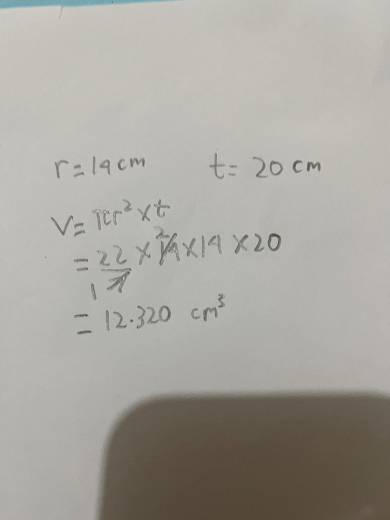 r = 14 cm t = 20 cm
V = πr² × t
= 22/7 × 14 × 14 × 20
1 2
= 12.320 cm³